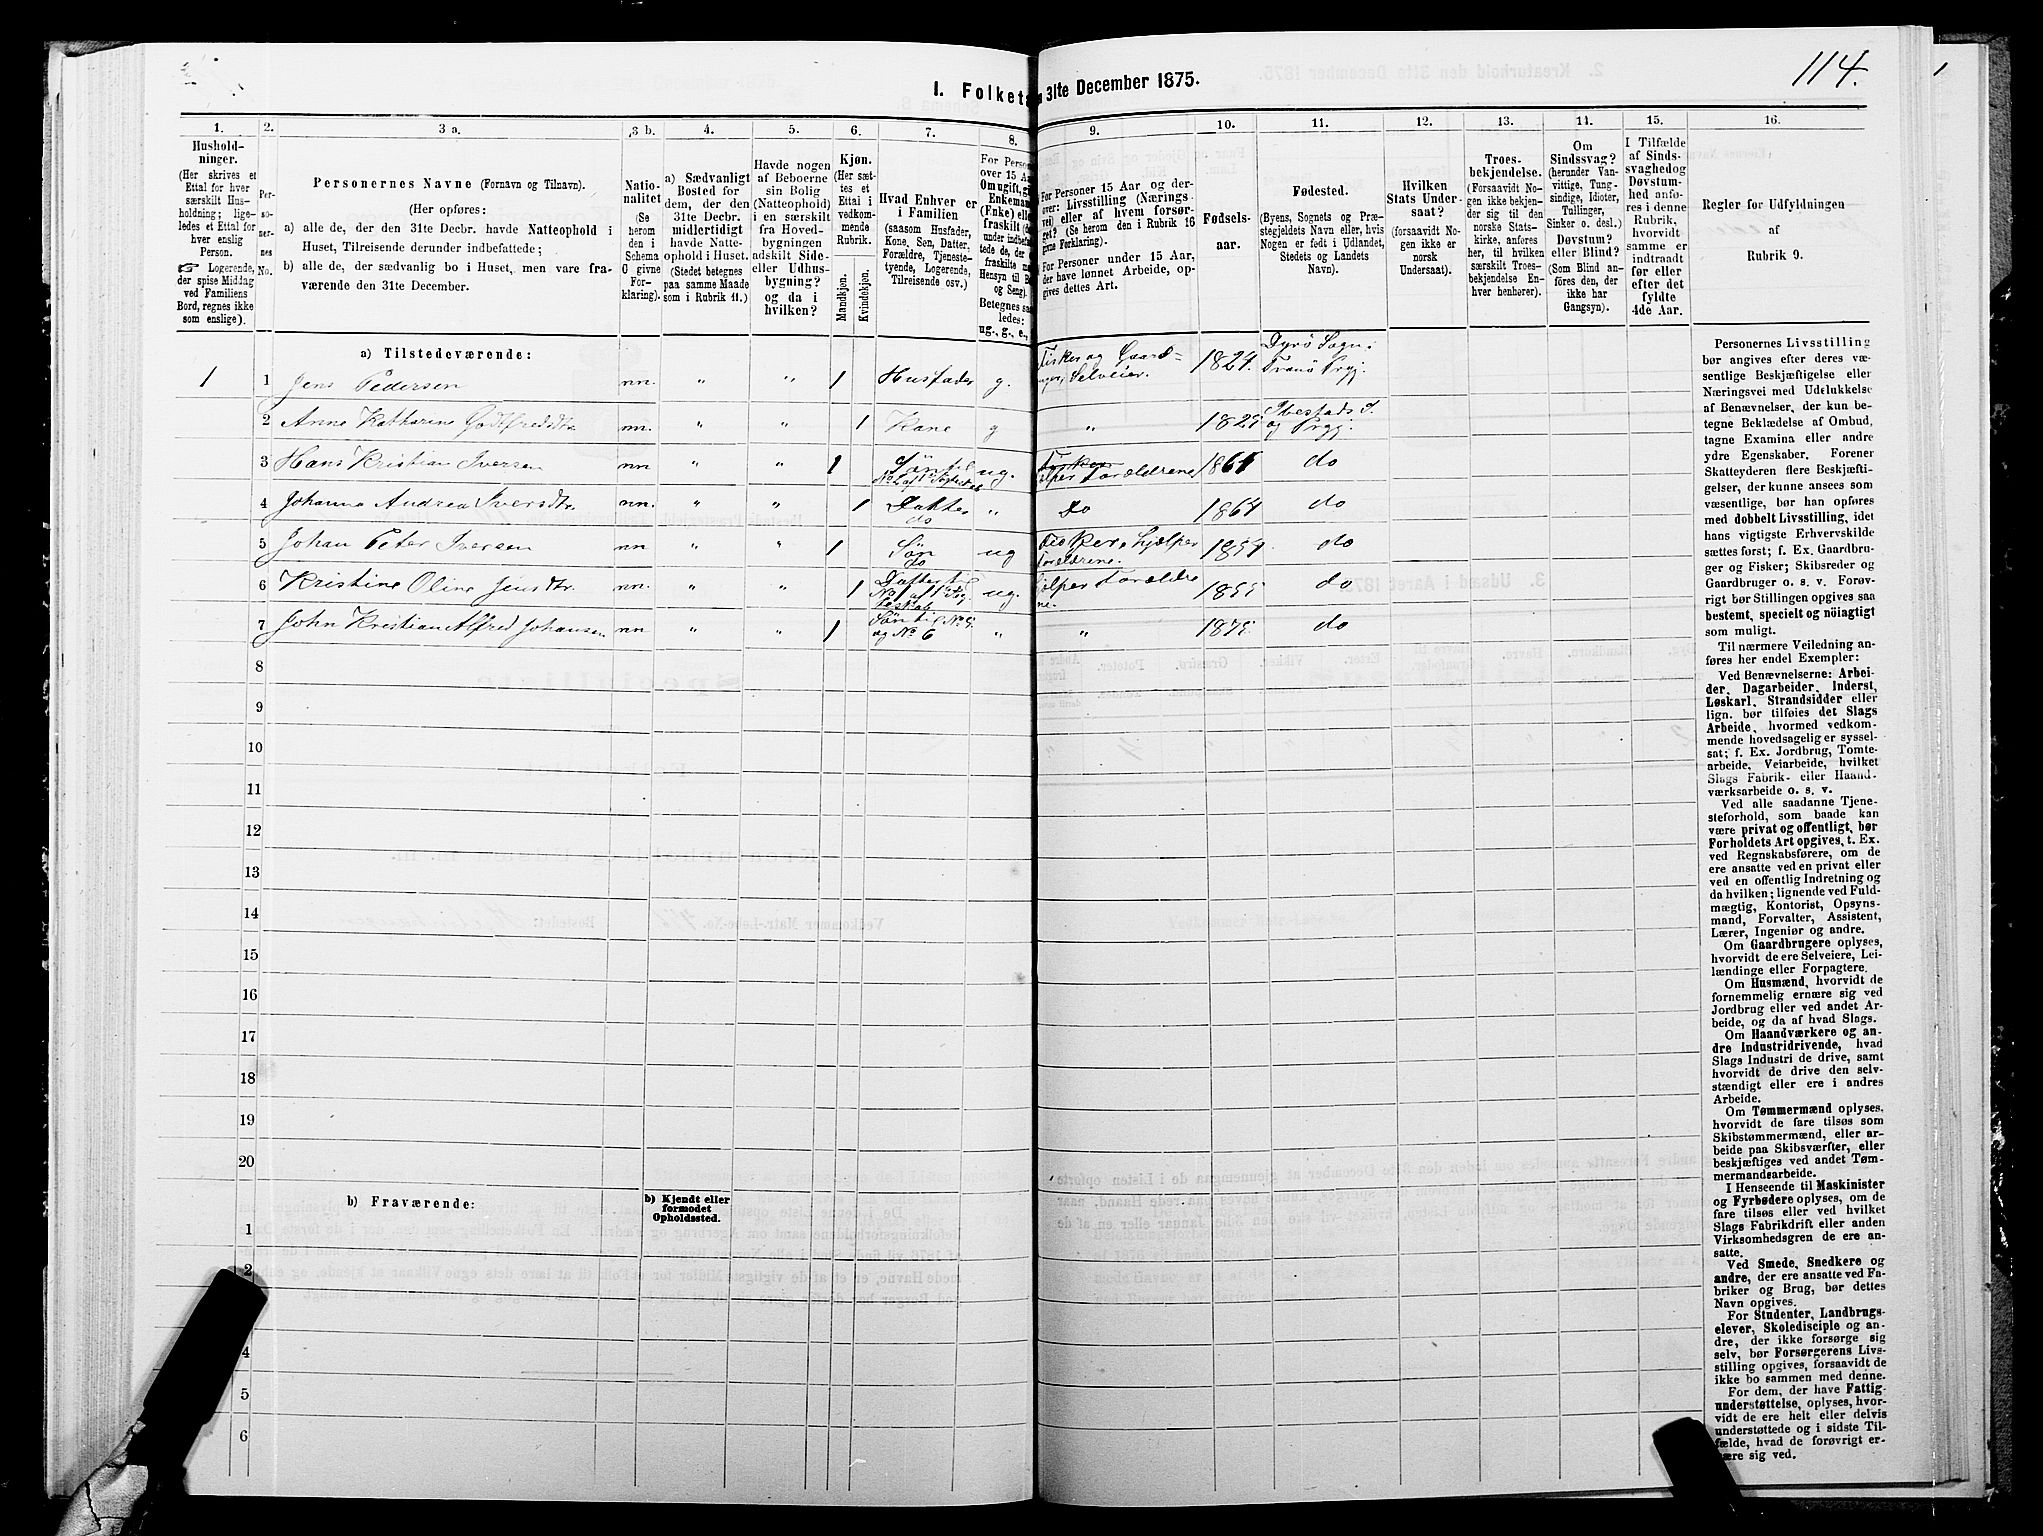 114.
I. Folketæ
31te December 1875.
1. 2. 3 a. 3 b. 4. 5. 6. 7. 8. 9. 10. 11. 12. 13. 14. 15. 16.
Hushold-
ninger.
(Her skrives et
Ettal for hver
særskilt Hus-
holdning; lige-
ledes et Ettal for
hver enslig
Person.
☞ Logerende,
der spise Middag
ved Familiens
Bord, regnes ikke
som enslige).
Per-
so-
ner-
nes
No.
Personernes Navne (Fornavn og Tilnavn).
(Her opføres:
a) alle de, der den 31te Decbr. havde Natteophold i
Huset, Tilreisende derunder indbefattede;
b) alle de, der sædvanlig bo i Huset, men vare fra-
værende den 31te December.
Natio-
nalitet
(Se
herom
den i
Schema
O givne
For-
klaring).
a) Sædvanligt
Bosted for
dem, der den
31te Decbr.
midlertidigt
havde Natte-
ophold i Huset.
(Stedet betegnes
paa samme Maade
som i Rubrik 11.)
Havde nogen
af Beboerne
sin Bolig
(Natteophold)
i en særskilt
fra Hoved-
bygningen
adskilt Side-
eller Udhus-
bygning?
og da i
hvilken?
Kjøn.
(Her sæt-
tes et
Ettal i
vedkom-
mende
Rubrik.
Mandkjøn.
Kvindekjøn.
Hvad Enhver er
i Familien
(saasom Husfader,
Kone, Søn, Datter,
Forældre, Tjeneste-
tyende, Logerende,
Tilreisende osv.)
For Person
over 15 Aar
Om ugift, gi
Enkeman
(Enke) elle
fraskilt (de
under indbefat
tede de, der e
fraskilte me
Hensyn til B
og Seng).
Betegnes saa
ledes:
ug., g., e.,
For Personer 15 Aar og der-
over: Livsstilling (Nærings-
vei) eller af hvem forsør-
get? (Se herom den i Rubrik 16
givne Forklaring).
For Personer under 15 Aar,
der have lønnet Arbeide, op-
gives dettes Art.
Fødsels-
aar.
Fødested.
(Byens, Sognets og Præ-
stegjeldets Navn eller, hvis
Nogen er født i Udlandet,
Stedets og Landets
Navn).
Hvilken
Stats Under-
saat?
(forsaavidt No-
gen ikke er
norsk
Undersaat).
Troes-
bekjendelse.
(Forsaavidt No-
gen ikke bekjen-
der sig til den
norske Stats-
kirke, anføres
her, til hvilken
særskilt Troes-
bekjendelse En-
hver henhører).
Om
Sindssvag?
(herunder Van-
vittige, Tung-
sindige, Idioter,
Tullinger,
Sinker o. desl.)
Døvstum?
eller Blind?
(Som Blind an-
føres den, der
ikke har
Gangsyn).
I Tilfælde
af Sinds-
svaghed og
Døvstum-
hed anfø-
res i denne
Rubrik,
hvorvidt
samme er
indtraadt
før eller
efter det
fyldte
4de Aar.
Regler for Udfyldningen
af
Rubrik 9.
a) Tilstedeværende:
1 1 Jens Pedersen nn. „ „ 1 Husfader g. Fisker og Gaard= Selveier. 1824. Dyrø Sogn. Tranø Prgj.
2 Anne Katharine Godtfredsdtr. nn. „ „ 1 Kone g „ Ibestads S. og Prgj.
3 Hans Kristian Iversen nn „ „ 1 Søn til No 2 ug. Forældrene do
4 Johanna Andrea Iversdtr. nn. „ „ 1 Datter do „ Do 1864 do
5 Johan Peter Iversen nn „ „ 1 Søn do ug Fisker, hjælper Forældrene. do
6 Kristine Oline Jensdtr. nn. „ „ 1 Datter til No 1 ug. hjælper Forældrene. 1855 do
7 John Kristian Alfred Johansen nn „ „ 1 Søn til No 5 og No 6 „ „ 1875. do
8
9
10
11
12
13
14
15
16
17
18
19
20
b) Fraværende:
b) Kjendt eller
formodet
Opholdssted.
1
2
4
5
6
Personernes Livsstilling
bør angives efter deres væ-
sentlige Beskjæftigelse eller
Næringsvei med Udelukkelse
af Benævnelser, der kun be-
tegne Beklædelse af Ombud,
tagne Examina eller andre
ydre Egenskaber. Forener
Skatteyderen flere Beskjæfti-
gelser, der kunne ansees som
væsentlige, bør han opføres
med dobbelt Livsstilling, idet
hans vigtigste Erhvervskilde
sættes først; f. Ex. Gaardbru-
ger og Fisker; Skibsreder og
Gaardbruger o. s. v. Forøv-
rigt bør Stillingen opgives saa
bestemt, specielt og nøiagtigt
som muligt.
Til nærmere Veiledning an-
føres her endel Exempler:
Ved Benævnelserne: Arbei-
der, Dagarbeider, Inderst,
Løskarl, Strandsidder eller
lign. bør tilføies det Slags
Arbeide, hvormed vedkom-
mende hovedsagelig er syssel-
sat; f. Ex. Jordbrug, Tomte-
arbeide, Veiarbeide, hvilket
Slags Fabrik- eller Haand-
værksarbeide o. s. v.
Ved alle saadanne Tjene-
steforhold, som baade kan
være privat og offentligt, bør
Forholdets Art opgives, t. Ex.
ved Regnskabsførere, om de
ere ansatte ved en privat eller
ved en offentlig Indretning og
da hvilken; lignende ved Fuld-
mægtig, Kontorist, Opsyns-
mand, Forvalter, Assistent,
Lærer, Ingeniør og andre.
Om Gaardbrugere oplyses,
hvorvidt de ere Selveiere, Lei-
lændinge eller Forpagtere.
Om Husmænd, hvorvidt de
fornemmelig ernære sig ved
Jordbrug eller ved andet Ar-
beide, og da af hvad Slags.
Om Haandværkere og an-
dre Industridrivende, hvad
Slags Industri de drive, samt
hvorvidt de drive den selv-
stændigt eller ere i andres
Arbeide.
Om Tømmermænd oplyses,
hvorvidt de fare tilsøs som
Skibstømmermænd, eller ar-
beide paa Skibsværfter, eller
beskjæftiges ved andet Tøm-
mermandsarbeide.
I Henseende til Maskinister
og Fyrbødere oplyses, om de
fare tilsøs eller ved hvilket
Slags Fabrikdrift eller anden
Virksomhedsgren de ere an-
satte.
Ved Smede, Snedkere og
andre, der ere ansatte ved Fa-
briker og Brug, bør dettes
Navn opgives.
For Studenter, Landbrugs-
elever, Skoledisciple og an-
dre, der ikke forsørge sig
selv, bør Forsørgerens Livs-
stilling opgives, forsaavidt de
ikke bo sammen med denne.
For dem, der have Fattig-
understøttelse, oplyses, hvor-
vidt de ere helt eller delvis
understøttede og i sidste Til-
fælde, hvad de forøvrigt er-
nære sig ved.